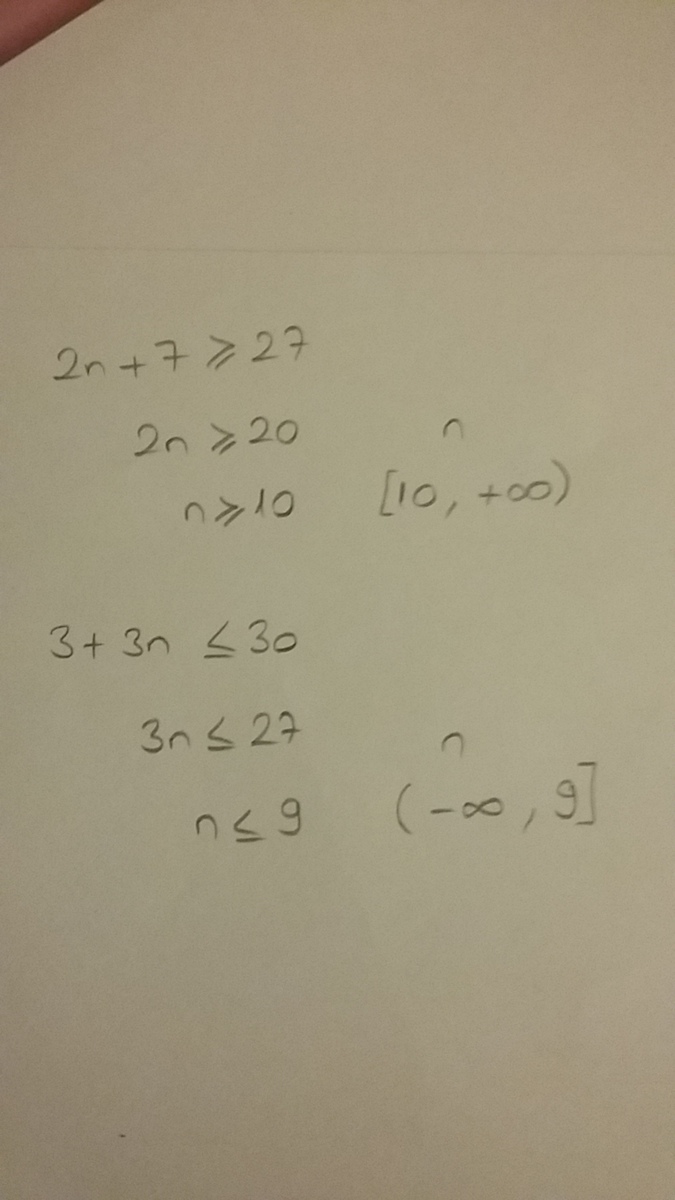 2n + 7 ⩾ 27
2n ⩾ 20 n
n ⩾ 10 [10, +∞)
3 + 3n ≤ 30
3n ≤ 27 n
n ≤ 9 (-∞, 9]